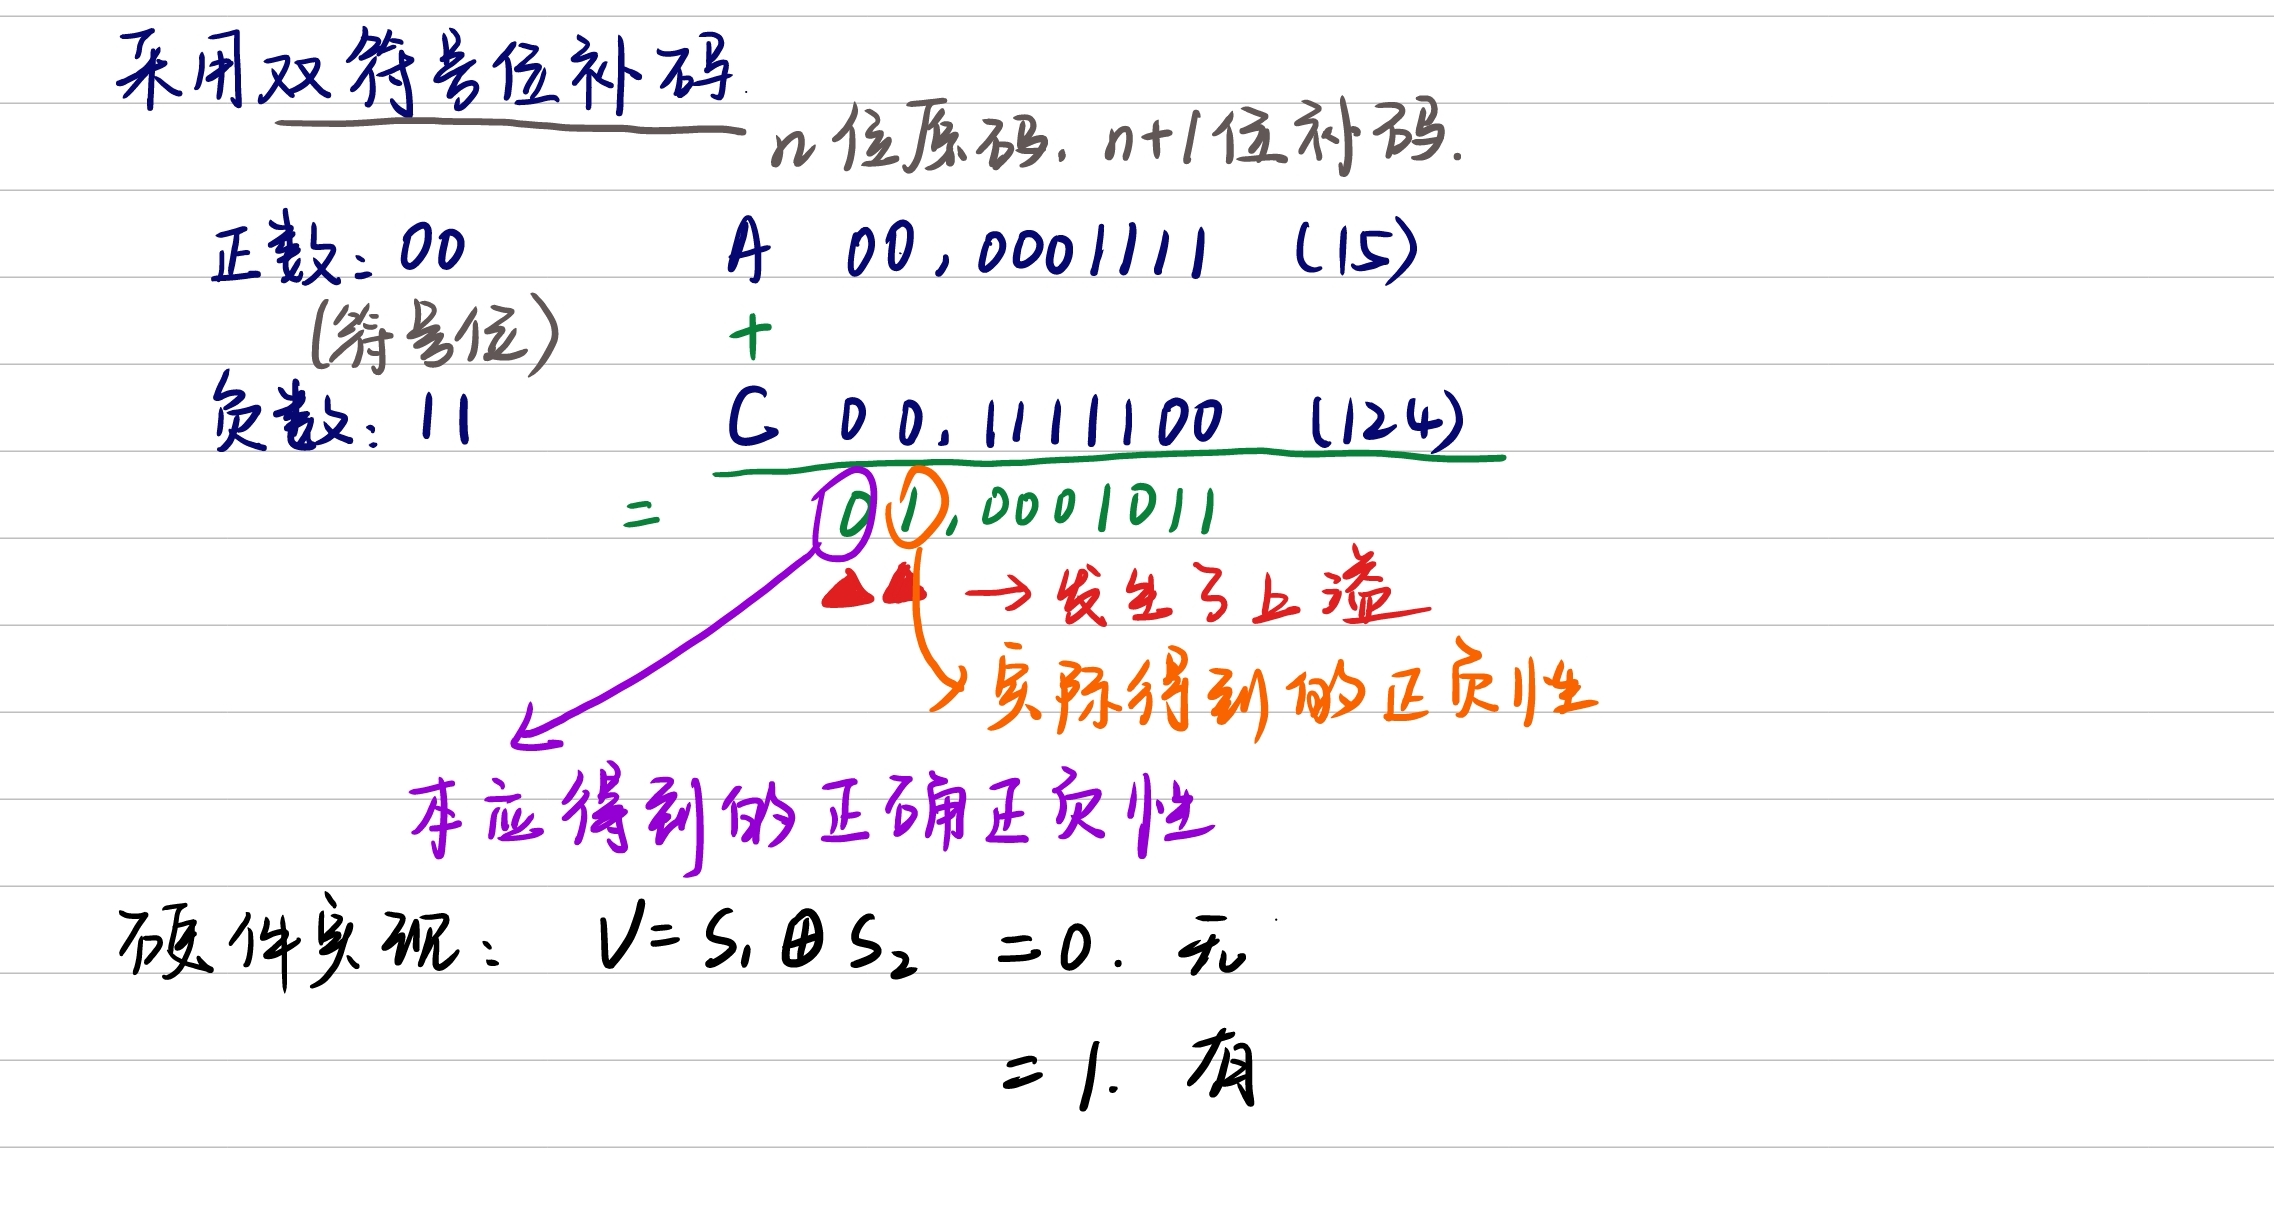 采用双符号位补码.
n位原码, n+1位补码.
正数: 00 A 00,0001111 (15)
(符号位) +
负数: 11 C 00,1111100 (124)
= 01,0001011
→ 发生了上溢
实际得到的正负性
本应得到的正确正负性
硬件实现: V = S₁ ⊕ S₂ = 0. 无
= 1. 有